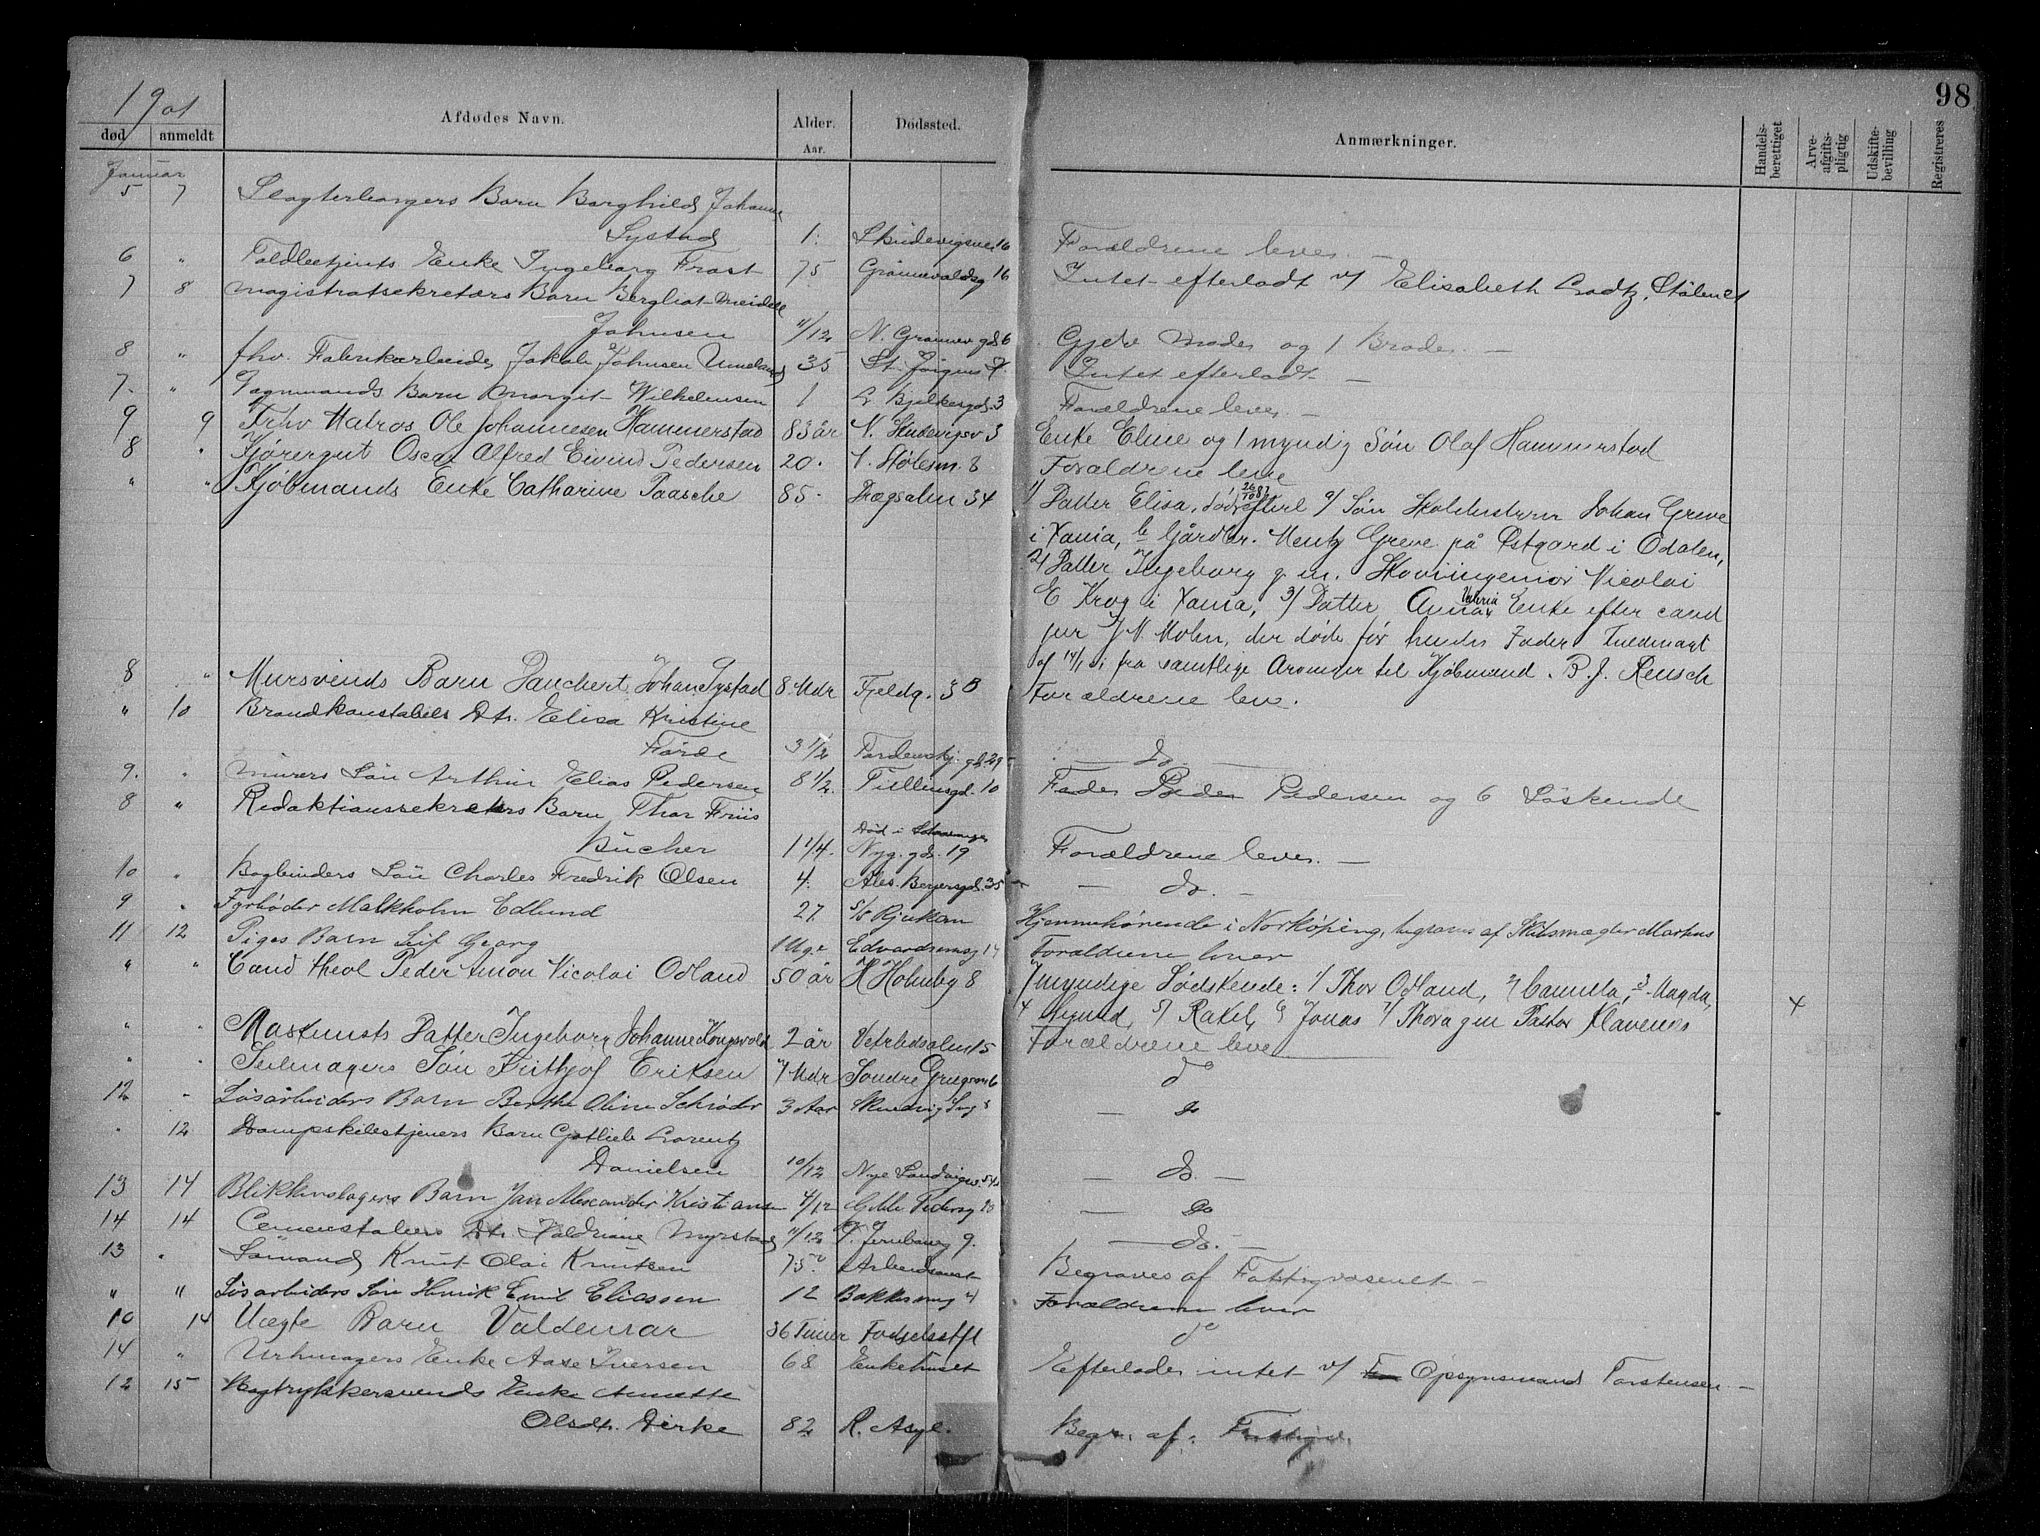 98
1901
død anmeldt Afdødes Navn. Alder. Aar. Dødssted. Anmærkninger. Handelsberettiget Arveafgiftspligtig Udskiftebevilling Registreres
Januar
5 7 Slagterborgers Barn Borghild Johanne
Systad 1. Skudevigsvei 16 Forældrene lever. —
6 " Toldbetjents Enke Ingeborg Frost 75 16 Intet efterladt v/ Elisabeth
7 8 Magistratsekretærs Barn Bergliot Meidell
Johnsen 11/12 6 Gjelv Moder og 1 Broder —
8 " fhv. Fabrikarbeider Jakob Johnsen 35 St. Jørgens Intet efterladt —
7. " Barn Margit Wilhelmsen 1 3 Forældrene lever. —
9 9 Fhv Matros Ole Johannesen Hammerstad 83 år N. 3 Enke Eline og 1 myndig Søn Olaf Hammerstad
8 " Kjøregut Oscar Alfred Eivind Pedersen 20. 8 Forældrene leve
" " Kjøbmands Enke Catharine Paasche 85. Drægsalm 34 1/ Datter Elisa, død 26/10 87 efterl a/ Søn Holdustrum Johan Greve
i Xania, b Gårdbr. Mentz Greve på Østgard i Odalen,
2/ Datter Ingeborg g. m. Nicolai
E Krog i Xania, 3/ Datter Anna Valeria Enke efter cand
jur J N Mohn, der døde før hendes Fader Fuldmagt
af 14/1 i fra samtlige Arvinger til Kjøbmand. B. J. Rensch
8 " Mursvends Barn Johan Systad 8 Mdr Fjeldg. 3 B Forældrene leve.
" 10 Brandkonstabels Dtr. Elisa Kristine
Førde 3 1/2 29 — do. —
9. " Murers Søn Arthur Elias Pedersen 8 1/2. 10 Fader Peder Pedersen og 6 Søskende
8 " Redaktionssekretærs Barn Thor Friis
Bücher 1 1/4. Død i Stavanger Nyg. gd. 19 Forældrene lever. —
10 " Bogbinders Søn Charles Fredrik Olsen 4. 35 — do. —
9 " Fyrbøder Malkholm Edlund 27 S/S Rjukan Hjemmehørende i Norkøping, begraves af Skibsmægler Markus
11 12 Piges Barn Leif Georg 1 Uge Forældrene lever
" " Cand theol Peder Anton Nicolai Odland 50 år H Holmbg 8 7 myndige Sødskende: 1/ Thor Odland, 2/ Camilla, 3 Magda,
4 Sigurd, 5/ Rakel, 6 Jonas 7/ Thora gm Pastor Klaveness x
" " Datter Ingeborg Johanne Kongsvold 2 år 15 Forældrene leve
" " Seilmagers Søn Frithjof Eriksen 7 Mdr Søndre 6 do
12 " Løsarbeiders Barn Berthe Oline Schrøder 3 Aar — do
" 12 Dampskibstjeners Barn Gotlieb Lorentz
Danielsen 10/12 Nye Sandvigsv. — do. —
13 14 Blikkenslagers Barn Jan Alexander Kristiansen 4/12 — do
14 14 Dtr. Haldriane Myrstad 11/12 9. — do. —
13 " Sømand Knut Olai Knutsen 75. Arbeidsanst Begraves af Fattigvæsenet —
" " Løsarbeiders Søn Henrik Emil Eliassen 12 Forældrene lever
10 14 Uægte Barn Valdemar 36 Timer Fødselsstft do
14 " Urhmagers Enke Aase Iversen 68 Enkehuset Efterlader intet v/ Opsynsmand Torstensen —
12 15 Bogtrykkersvends Enke Annette
Olsdtr. Dirke 82 R. Asyl. Begr. af.